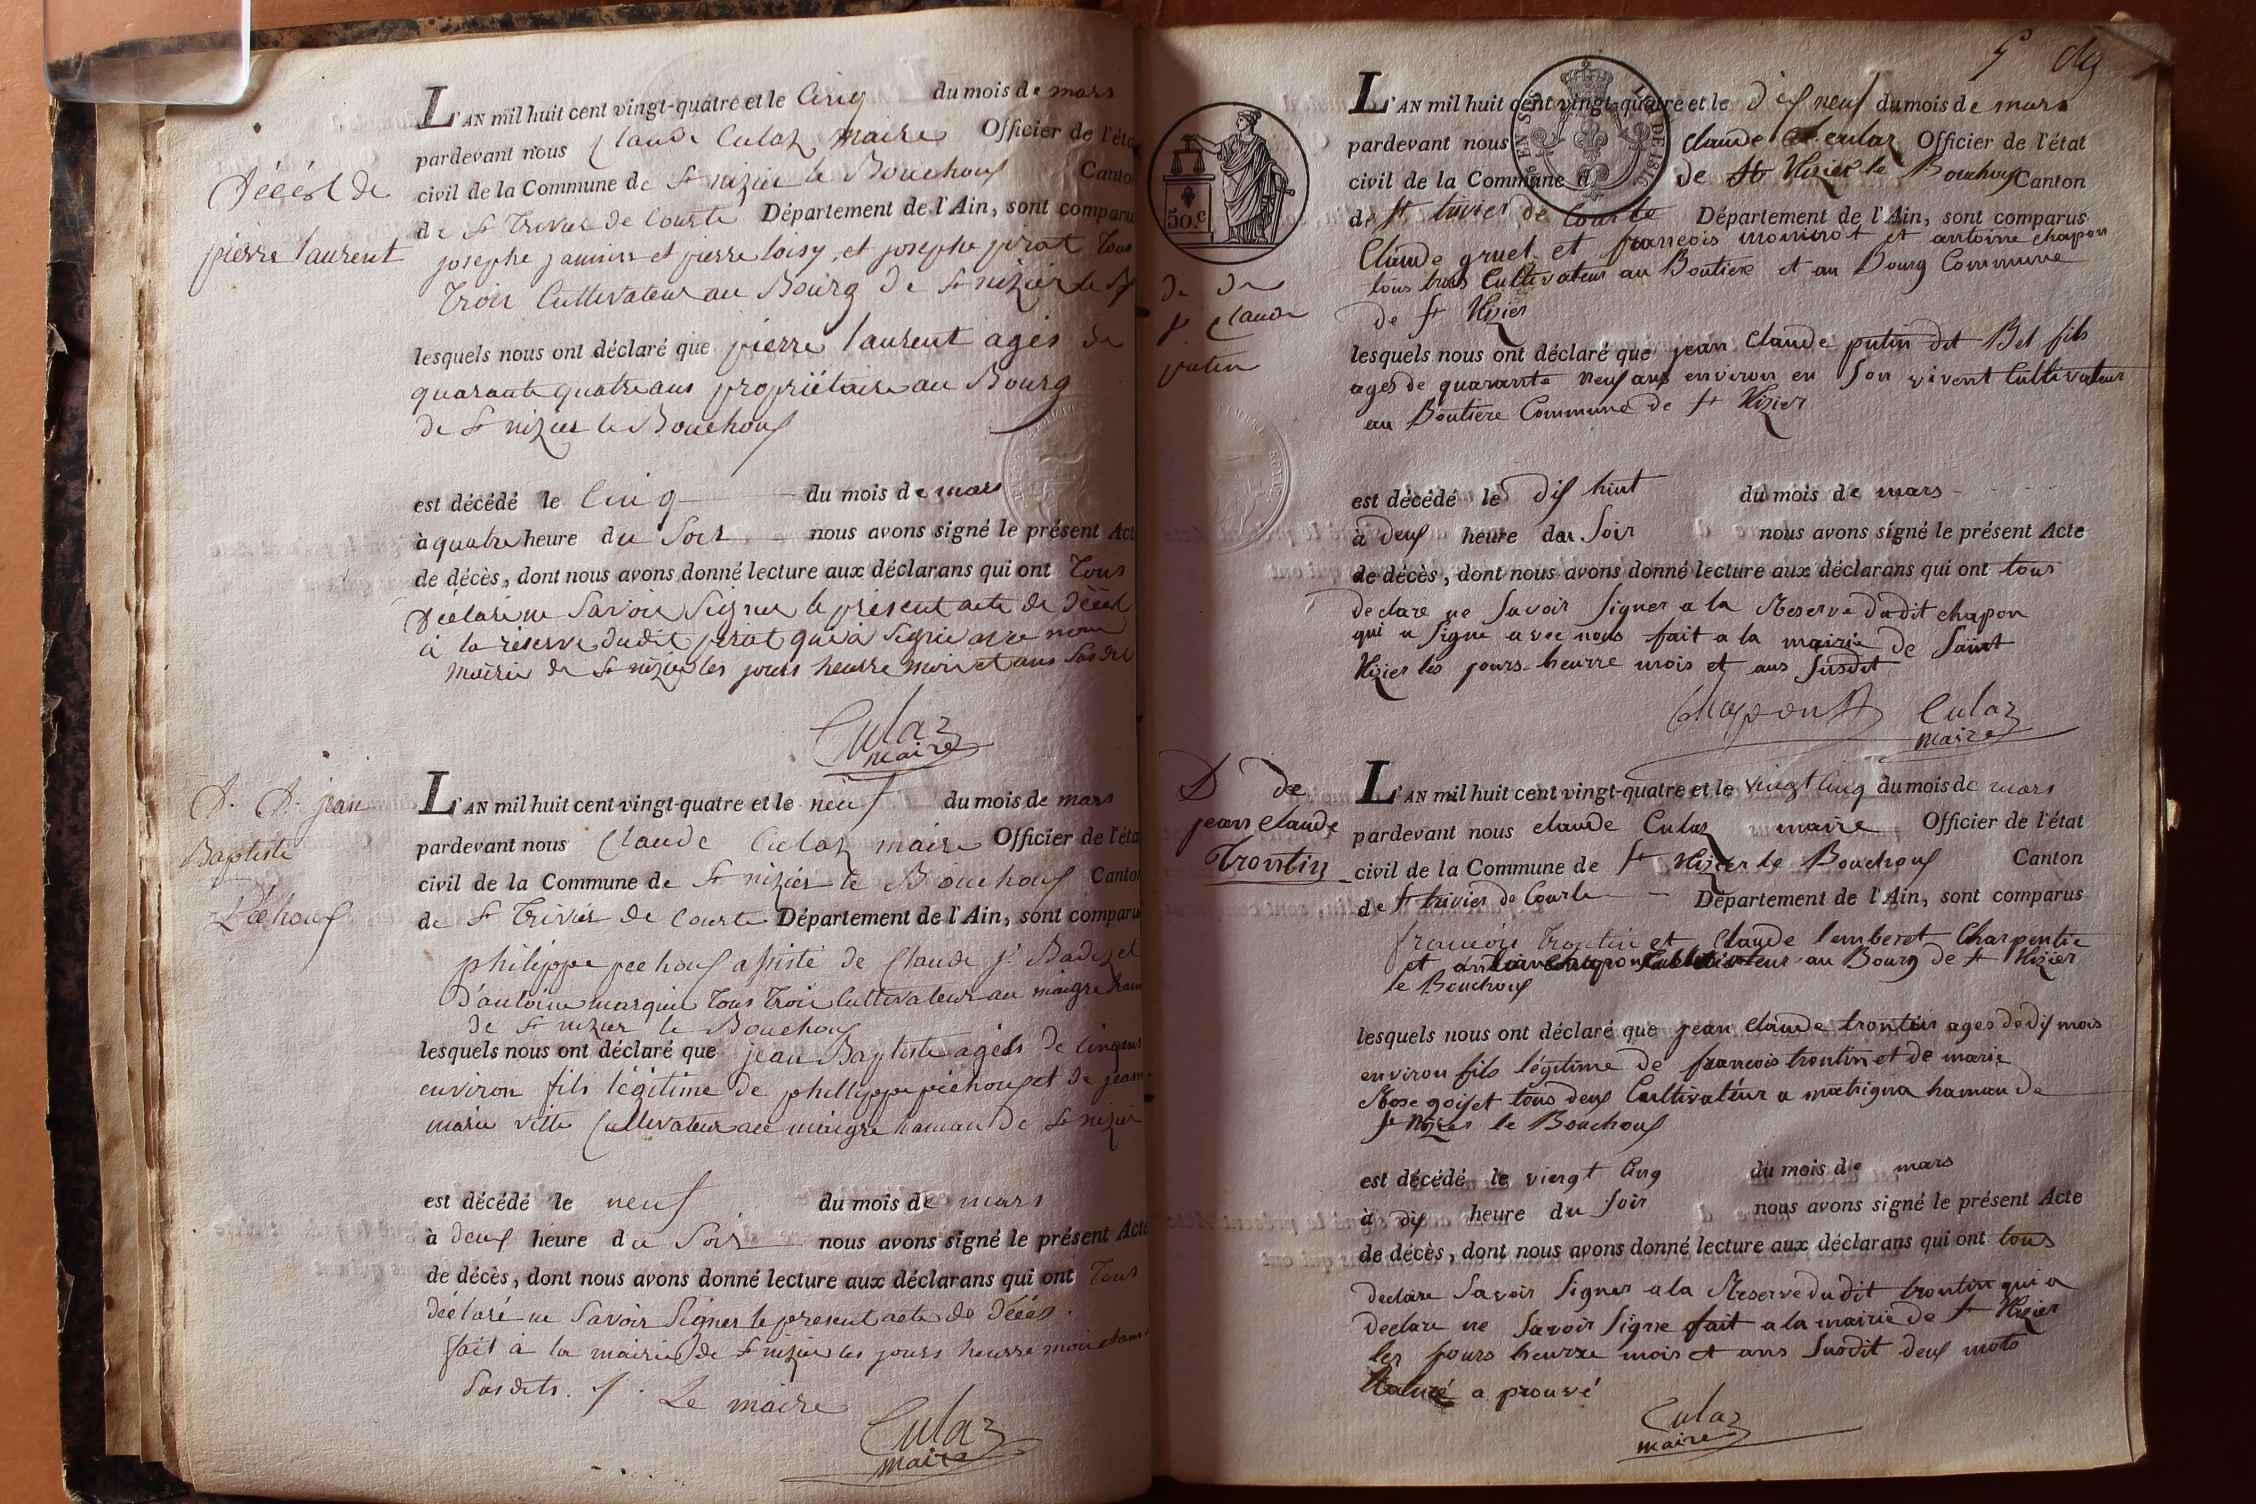 Décést de
pierre laurent
L'AN mil huit cent vingt-quatre et le Cinq du mois de mars
pardevant nous Claude Culaz maire Officier de l'éta
civil de la Commune de St nizier le Bouchoux Canto
de St Trivier de Courte Département de l'Ain, sont comparu
josephe jannin et pierre loisy, et josephe pirat Tous
Trois Cultivateur au Bourg de St nizier le
lesquels nous ont déclaré que pierre laurent agés de
quarante quatre ans propriétaire au Bourg
de St nizier le Bouchoux
est décédé le Cinq du mois de mars
à quatre heure du Soir nous avons signé le présent Act
de décès, dont nous avons donné lecture aux déclarans qui ont Tous
Déclaré ne Savoir Signer le présent acte de Décèt
à la réserve dudit pirat qui à Signé avec nous
mairie de St nizier les jours heurre mois et ans Susdit
Culaz
maire
D. D. jean
Baptiste
Péchoux
L'AN mil huit cent vingt-quatre et le neuf du mois de mars
pardevant nous Claude Culaz maire Officier de l'éta
civil de la Commune de St nizier le Bouchoux Canto
de St Trivier de Courte Département de l'Ain, sont comparu
philippe pechoux assisté de Claude j. Badez et
D'antoine marquis Tous Trois Cultivateur au maigre ham
de St nizier le Bouchoux
lesquels nous ont déclaré que jean Baptiste agés de Cinq ans
environ fils légitime de phillippe péchoux et de jeanne
marie vitte Cultivateur au maigre hamau De St nizier
est décédé le neuf du mois de mars
à deux heure du Soir nous avons signé le présent Acte
de décès, dont nous avons donné lecture aux déclarans qui ont Tous
déclaré ne Savoir Signer le present acte de Décés.
fait à la mairie de St nizier les jours heurre mois et ans
Susdits. Le maire
Culaz
maire
5e
50.c
EN SUS
LOI DE 1816
de de
j Claude
putin
L'AN mil huit cent vingt-quatre et le dix neuf du mois de mars
pardevant nous Claude Culaz Officier de l'état
civil de la Commune de St Nizier le Bouchoux Canton
de St trivier de Courte Département de l'Ain, sont comparus
Claude gruel et francois moninot et antoine chapon
tous trois Cultivateur au Boutiere et au Bourg Commune
de St Nizier
lesquels nous ont déclaré que jean Claude putin dit Bel fils
ages de quarante neuf ans environ en Son vivent Cultivateur
au Boutiere Commune de St Nizier
est décédé le dix huit du mois de mars
à deux heure du Soir nous avons signé le présent Acte
de décès, dont nous avons donné lecture aux déclarans qui ont tous
declare ne Savoir Signer a la Reserve dudit chapon
qui a Signe avec nous fait a la mairie de Saint
Nizier les jours heurre mois et ans Susdit
Chapont Culaz
maire
D de
jean Claude
Trontin
L'AN mil huit cent vingt-quatre et le vingt Cinq du mois de mars
pardevant nous claude Culaz maire Officier de l'état
civil de la Commune de St Nizier le Bouchoux Canton
de St trivier de Courte Département de l'Ain, sont comparus
francois trontin et Claude lemberet Charpentie
et antoine chapon Cultivateur au Bourg de St Nizier
le Bouchoux
lesquels nous ont déclaré que jean Claude trontin ages de dix mois
environ fils légitime de francois trontin et de marie
Rose goiset tous deux Cultivatéur a matrigna hamau de
St Nizier le Bouchoux
est décédé le viengt Cinq du mois de mars
à dix heure du Soir nous avons signé le présent Acte
de décès, dont nous avons donné lecture aux déclarans qui ont tous
declare Savoir Signer a la Reserve dudit trontin qui a
declare ne Savoir Signe fait a la mairie de St Nizier
les jours heurre mois et ans Susdit deux mots
a prouvé
Culaz
maire